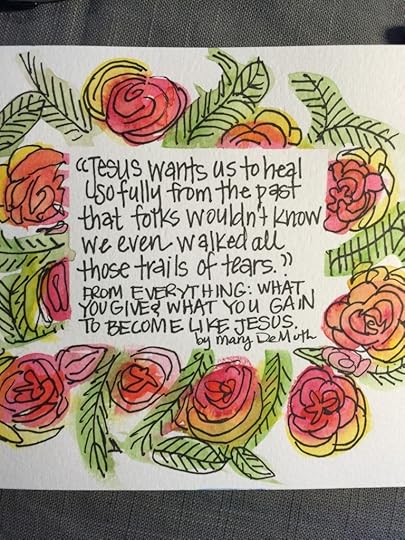 "Jesus wants us to heal
so fully from the past
that folks wouldn't know
we even walked all
those trails of tears."
FROM EVERYTHING: WHAT
YOU GIVE & WHAT YOU GAIN
TO BECOME LIKE JESUS.
by Mary DeMuth